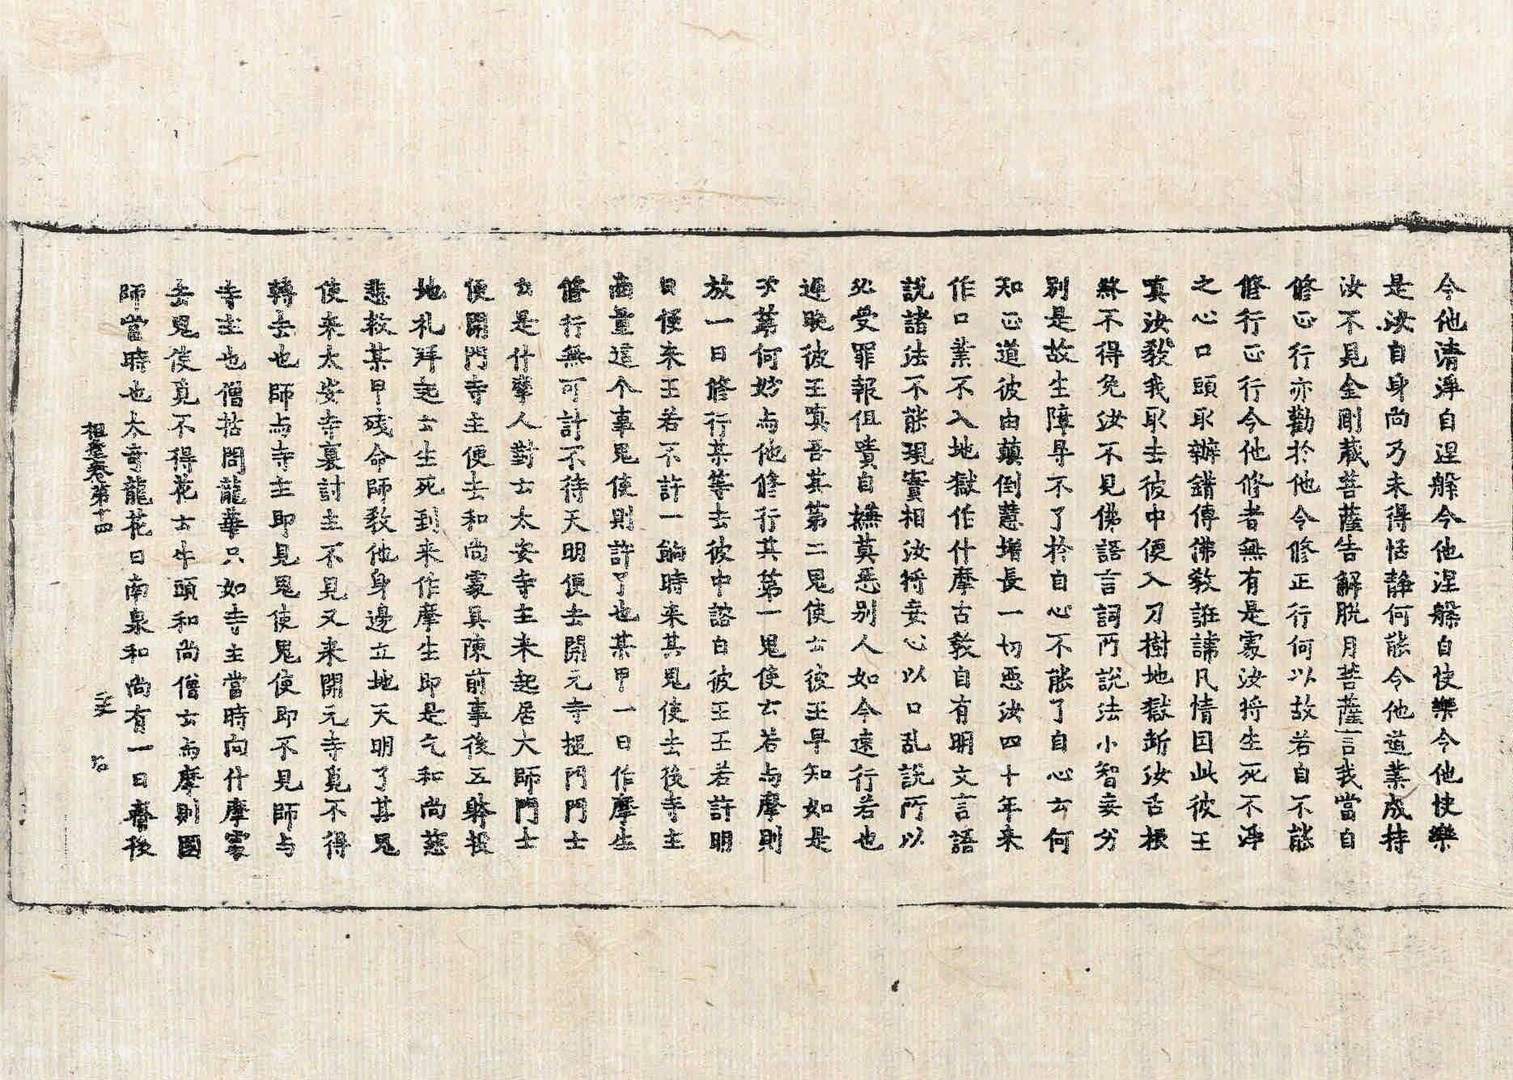 今他清淨自涅槃今他涅槃自快樂今他快樂
是汝自身尚乃未得恬靜何能令他道業成持
汝不見金剛藏菩薩告解脫月菩薩言我當自
修正行亦勸於他令修正行何以故若自不能
修行正行令他修者無有是處汝將生死不淨
之心口頭取辦錯傳佛教誑謼凡情因此彼王
嗔汝教我取去彼中便入刀樹地獄斬汝舌根
終不得免汝不見佛語言詞所說法小智妄分
別是故生障导不了於自心不能了自心云何
知正道彼由顛倒慧增長一切惡汝四十年來
作口業不入地獄作什摩古教自有明文言語
說諸法不能現實相汝將妄心以口乱說所以
必受罪報但嘖自嫌莫惡別人如今速行若也
遲晚彼王嗔吾其第二鬼使云彼王早知如是
次第何妨与他修行其第一鬼使云若与摩則
放一日修行某等去彼中諮白彼王王若許明
日便來王若不許一餉時来其鬼使去後寺主
商量這个事鬼使則許了也某甲一日作摩生
修行無可計不待天明便去開元寺搥門門士
云是什摩人對云太安寺主来起居大師門士
便開門寺主便去和尚處具陳前事後五躰投
地礼拜起云生死到来作摩生即是乞和尚慈
悲救某甲殘命師教他身邊立地天明了其鬼
使来太安寺裏討主不見又来開元寺覓不得
轉去也師与寺主即見鬼使鬼使即不見師与
寺主也僧拈問龍華只如寺主當時向什摩處
去鬼使覓不得花云牛頭和尚僧云与摩則國
師當時也太奇龍花曰南泉和尚有一日齋後
祖堂卷第十四